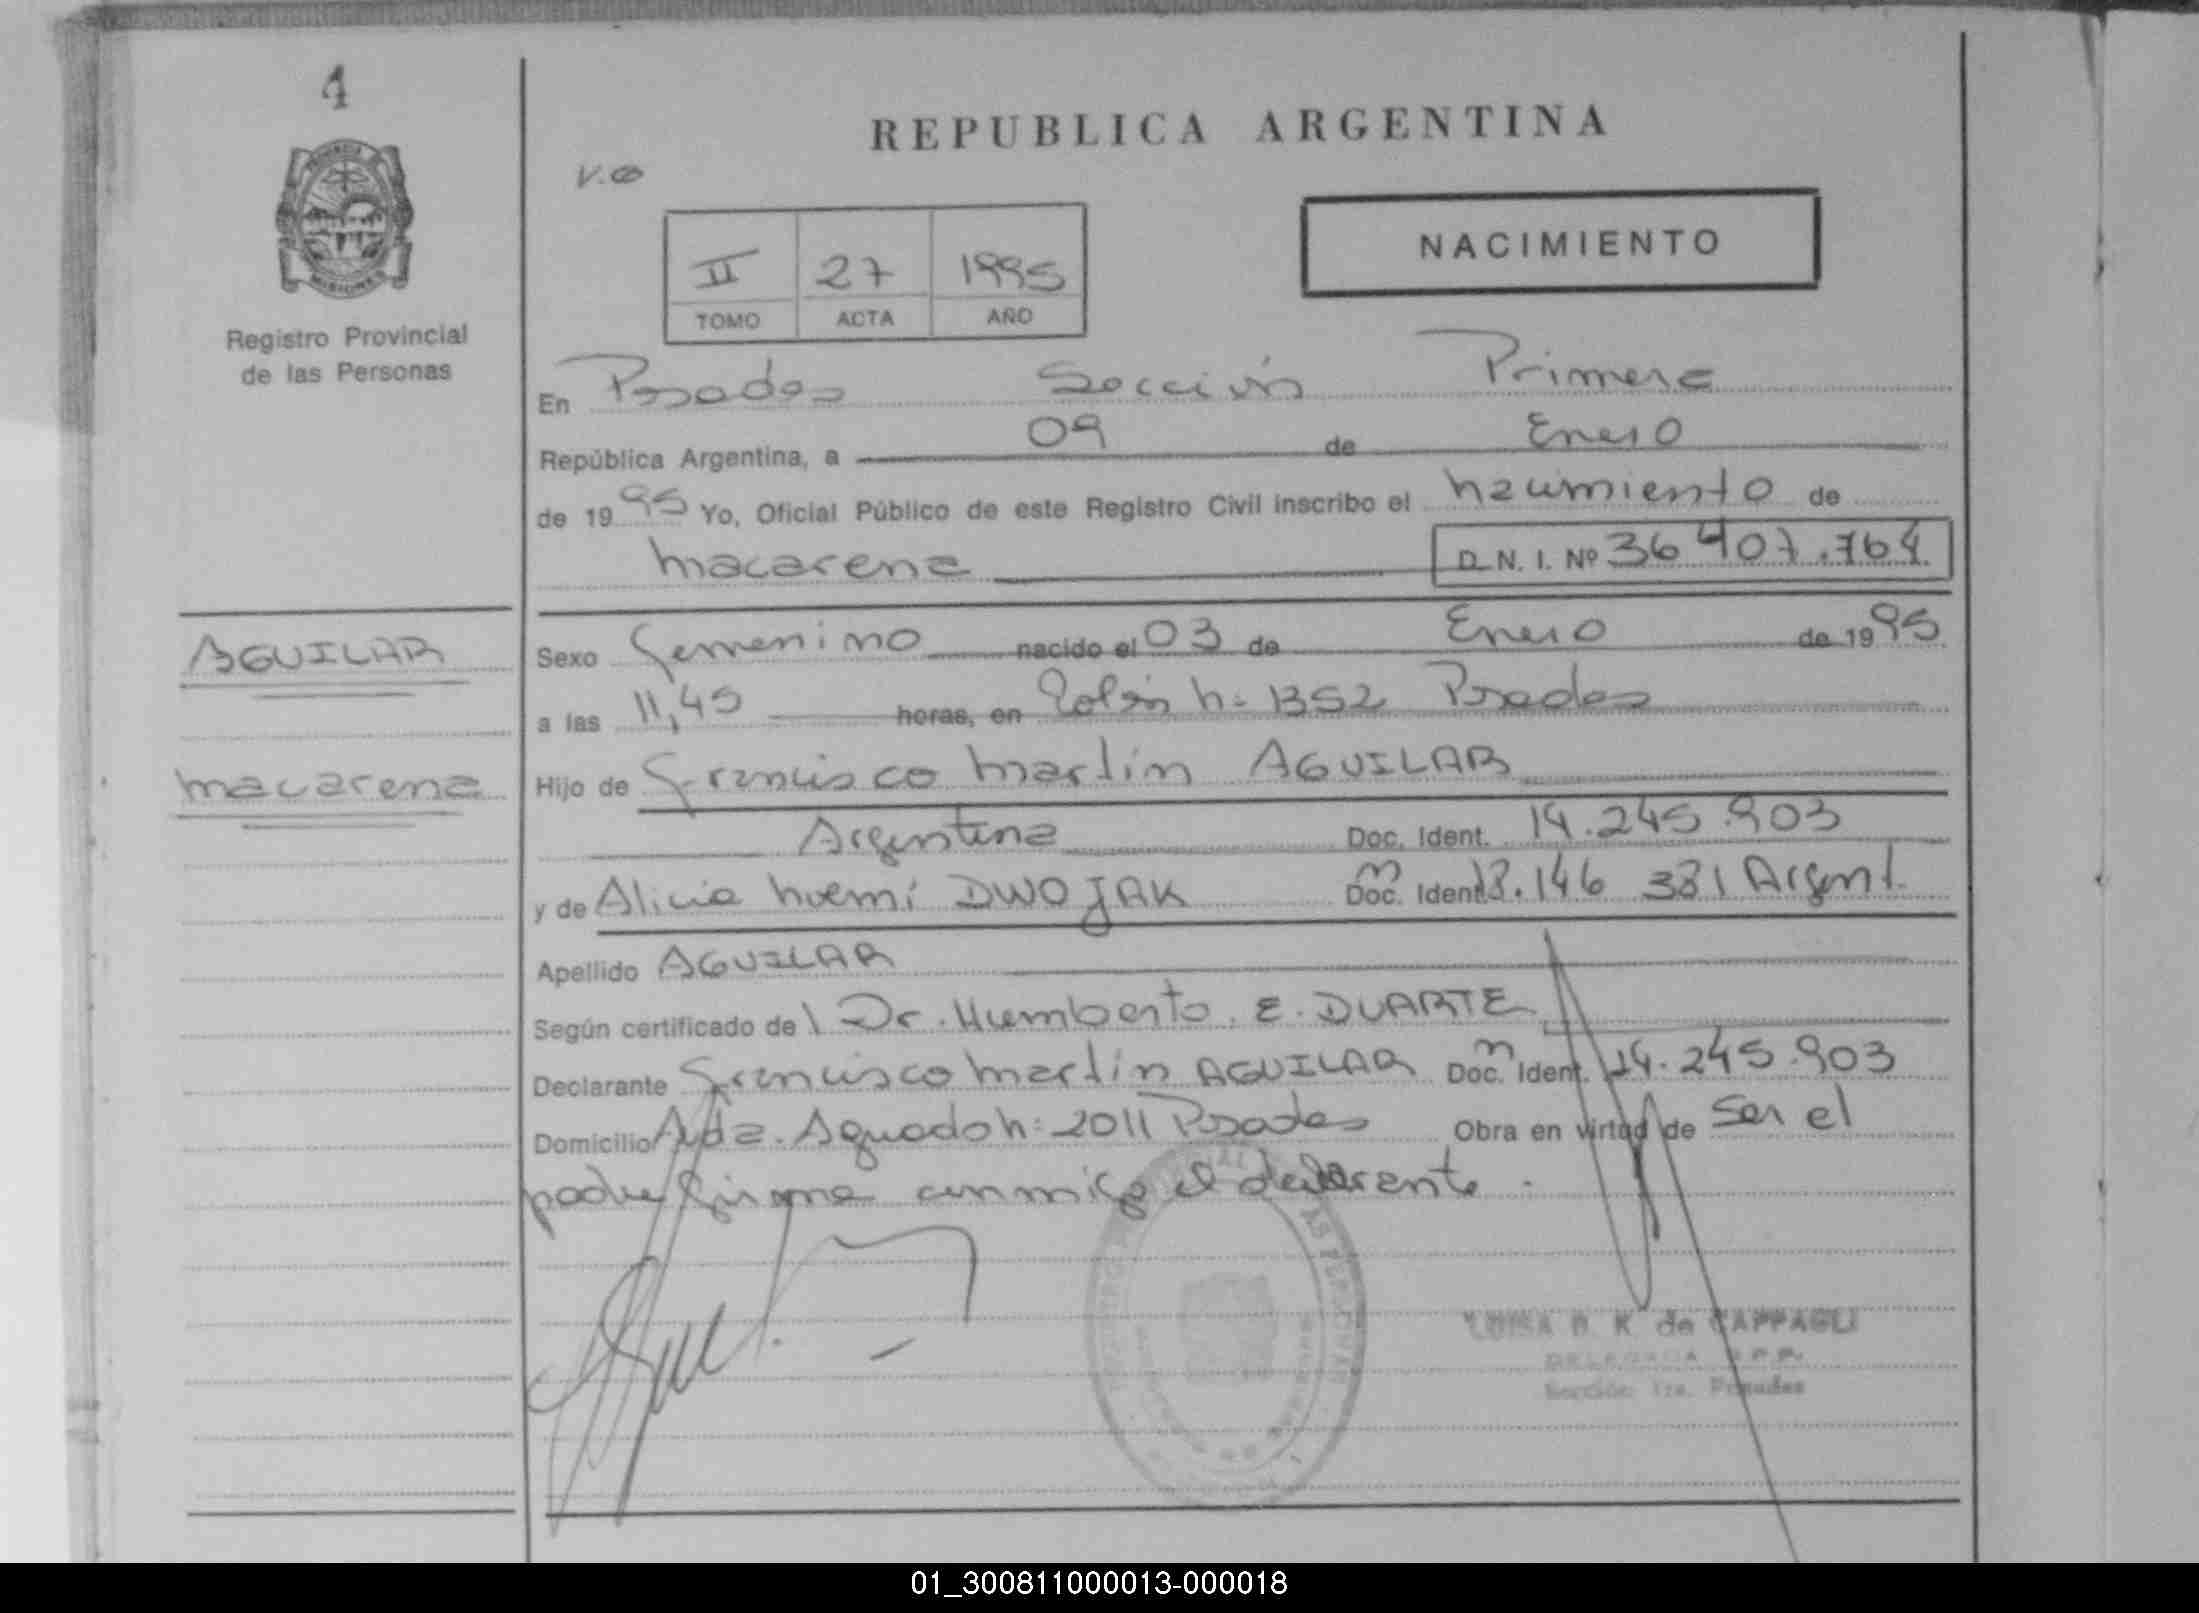 4
REPUBLICA ARGENTINA
NACIMIENTO
II 27 1995
TOMO ACTA AÑO
Registro Provincial
de las Personas
En Posadas Sección Primera
República Argentina, a 09 de Enero
de 1995 Yo, Oficial Público de este Registro Civil inscribo el nacimiento de
macarena D.N.I. Nº 36 407.764
AGUILAR
macarena
Sexo Femenino nacido el 03 de Enero de 1995
a las 11,45 horas, en Colón n= 1352 Posadas
Hijo de Francisco Martín AGUILAR
Argentina Doc. Ident. 14.245.903
y de Alicia Noemí DWOJAK Doc. Ident. 18.146 381 Argent.
Apellido AGUILAR
Según certificado de l Dr. Humberto. E. DUARTE
Declarante Francisco Martín AGUILAR Doc. Ident. 14.245.903
Domicilio Avda. Aguado n: 2011 Posadas Obra en virtud de ser el
padre firma conmigo el declarante.
LUISA D. K de CAPPAGLI
DELEGADA R.P.P.
Sección 1ra. Posadas
01_300811000013-000018